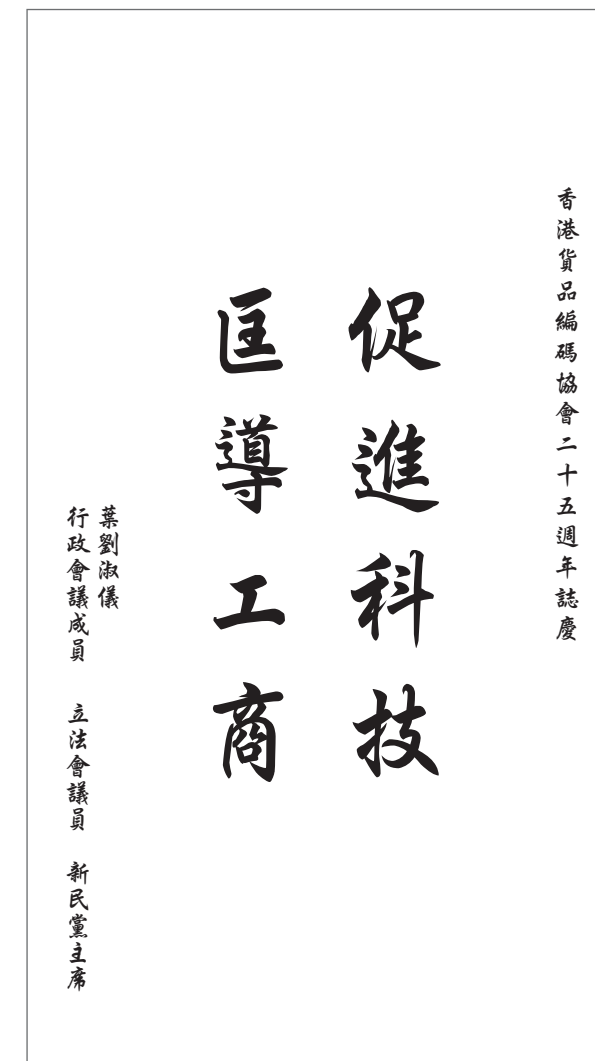 香港貨品編碼協會二十五週年誌慶
促進科技
匡導工商
葉劉淑儀
行政會議成員 立法會議員 新民黨主席